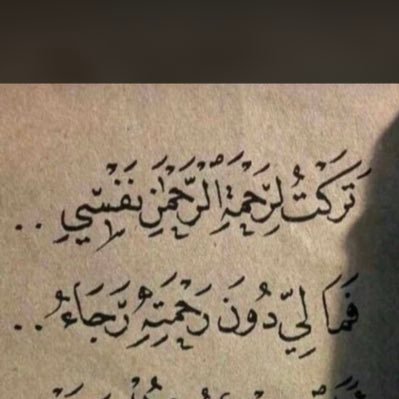 تَرَكْتُ لِرَحْمَةِ الرَّحْمٰنِ نَفْسِي ..
فَمَا لِي دُونَ رَحْمَتِهِ رَجَاءُ ..